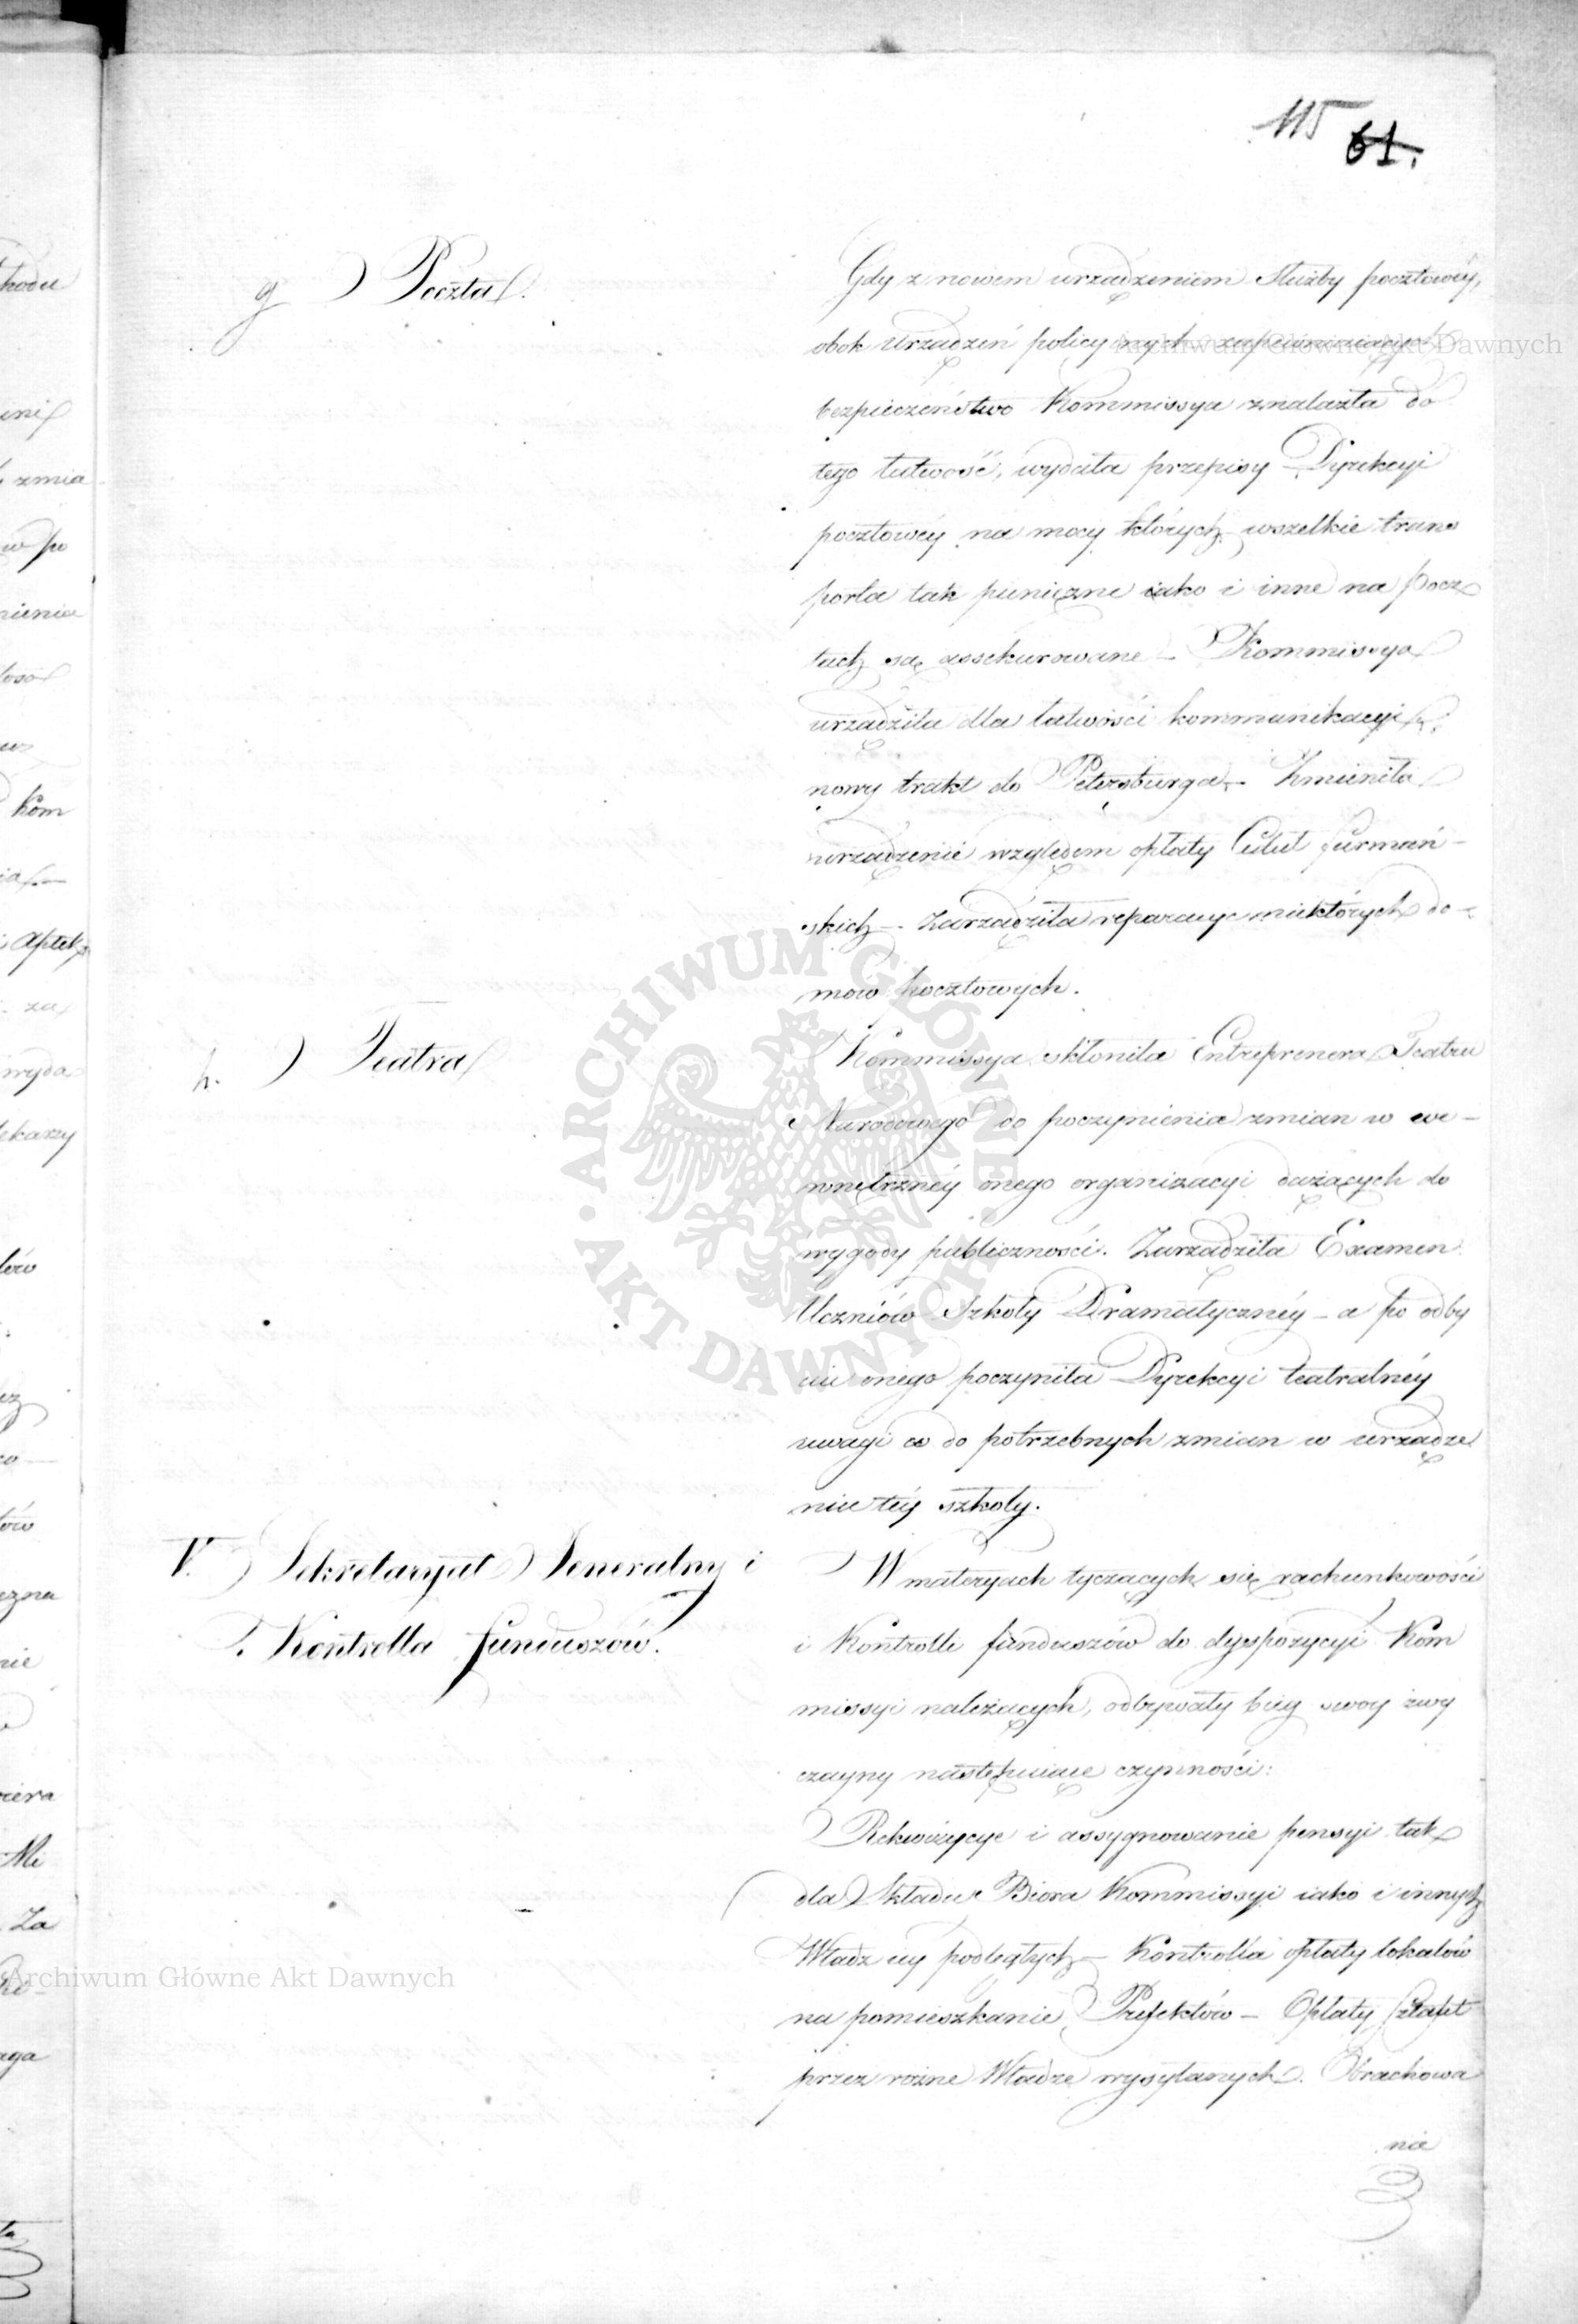 115 61.
g) Poczta.
Gdy z nowem urządzeniem Służby pocztowéy,
obok urządzeń policyjnych zapewniaiących
bezpieczeństwo Kommissya znalazła do
tego łatwość, wydała przepisy Dyrekcyi
pocztowéy na mocy których wszelkie trans
porta tak pieniężne iako i inne na Pocz
tach są assekurowane – Kommissya
urządziła dla łatwości kommunikacyi
nowy trakt do Petersburga – Zmieniła
urządzenie względem opłaty furmań-
skich – Zarządziła reparacye niektórych do-
mów pocztowych.
h.) Teatra
Kommissya skłoniła Entreprenera Teatru
Narodowego do poczynienia zmian w we-
wnętrznéy onego organizacyi dążących do
wygody publiczności. Zarządziła Examen
Uczniów Szkoły Dramatycznéy – a po odby
ciu onego poczyniła Dyrekcyi teatralnéy
uwagi co do potrzebnych zmian w urządze
niu téy szkoły.
V.) Sekretaryat Jeneralny i
Kontrolla funduszów.
W materyach tyczących się rachunkowości
i Kontrolli funduszów do dyspozycyi Kom
missyi należących, odbywały bieg swoy zwy
czayny następuiące czynności:
Rekwizycye i assygnowanie pensyi tak
dla Składu Biora Kommissyi iako i innych
Władz iéy podległych – Kontrolla opłaty lokalów
na pomieszkanie Prefektów – Opłaty sztafet
przez rożne Władze wysyłanych. Obrachowa
nie
ARCHIWUM GŁÓWNE AKT DAWNYCH
Archiwum Główne Akt Dawnych
Archiwum Główne Akt Dawnych